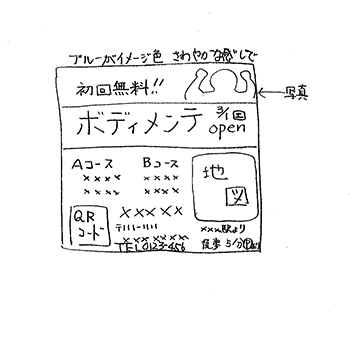 ブルーがイメージ色 さわやかな感じで
初回無料!!
写真
ボディメンテ
open
Aコース Bコース
×××× ××××
×××× ××××
地図
QRコード
×××××
〒111-1111
×× ××××
TEL 0123-456
×××駅より
徒歩5分